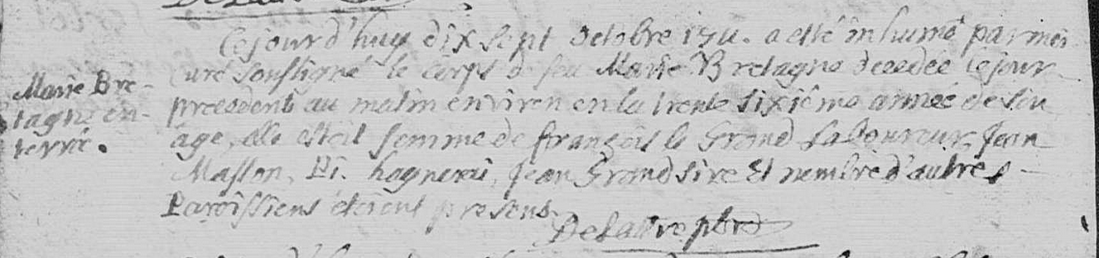 Ce jour d'huy dix sept octobre 1711. a esté inhumé par moi
curé soussigné le corps de feu Marie Bretagne decedée le jour
precedent au matin environ en la trente sixiéme année de son
age, elle estoit femme de françois le Grand Laboureur, Jean
Masson, Pi. hagnerai, Jean Grandsire Et nombre d'autres
Paroissiens étoient presens.
Marie Bre-
tagne en-
terrée.